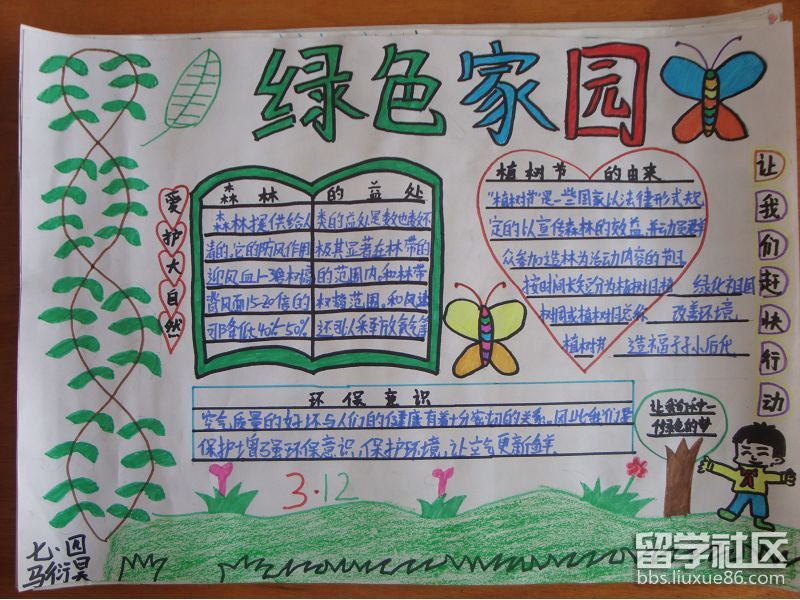 绿色家园
爱护大自然
森林的益处
森林提供给人类的益处是数也数不
清的,它的防风作用极其显著在林带的
迎风面1-3倍树高的范围内,和林带
背风面15-20倍的树高范围,和风速
可降低40%-50%还可以来至放氧气等
植树节的由来
"植树节"是一些国家以法律形式规
定的以宣传森林的效益,并动员群
众参加造林为活动内容的节日
按时间长短分为植树日植
树周或植树月总称
植树节
绿化祖国
改善环境
造福子孙后代
让我们赶快行动
环保意识
空气质量的好坏与人们的健康有着十分密切的关系,因此我们要
保护增强环保意识,保护环境,让空气更新鲜
让我们种一
个绿色的梦
3·12
七·四
马衍昊
留学社区
bbs.liuxue86.com